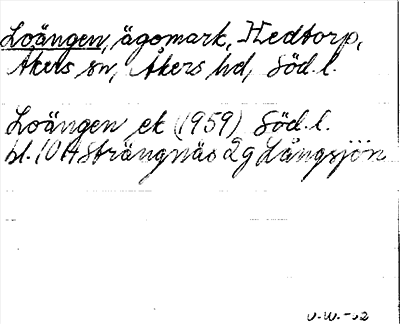 Loängen, ägomark, Hedtorp,
Åkers sn, Åkers hd, Söd. l.
Loängen ek (1959) Söd. l.
bl. 10H Strängnäs 2g Långsjön